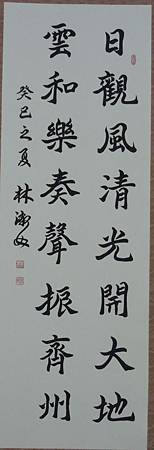 日觀風清光開大地
雲和樂奏聲振齊州
癸巳之夏 林